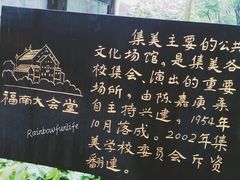 集美主要的公共
文化场馆,是集美各
校集会、演出的重要
场所,由陈嘉庚亲
自主持兴建,1954年
10月落成。2002年集
美学校委员会斥资
翻建。
福南大会堂
Rainbowfunlife